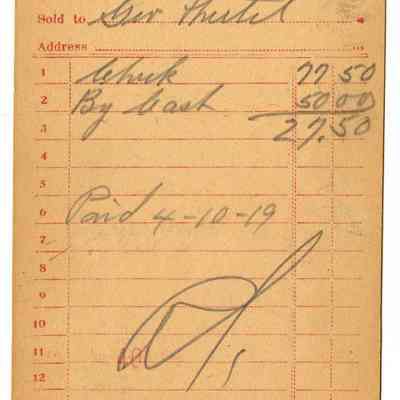 Sold to Geo
Address
1 Check 77 50
2 By Cash 50 00
3 27.50
4
5
6 Paid 4-10-19
7
8
9
10
11
12